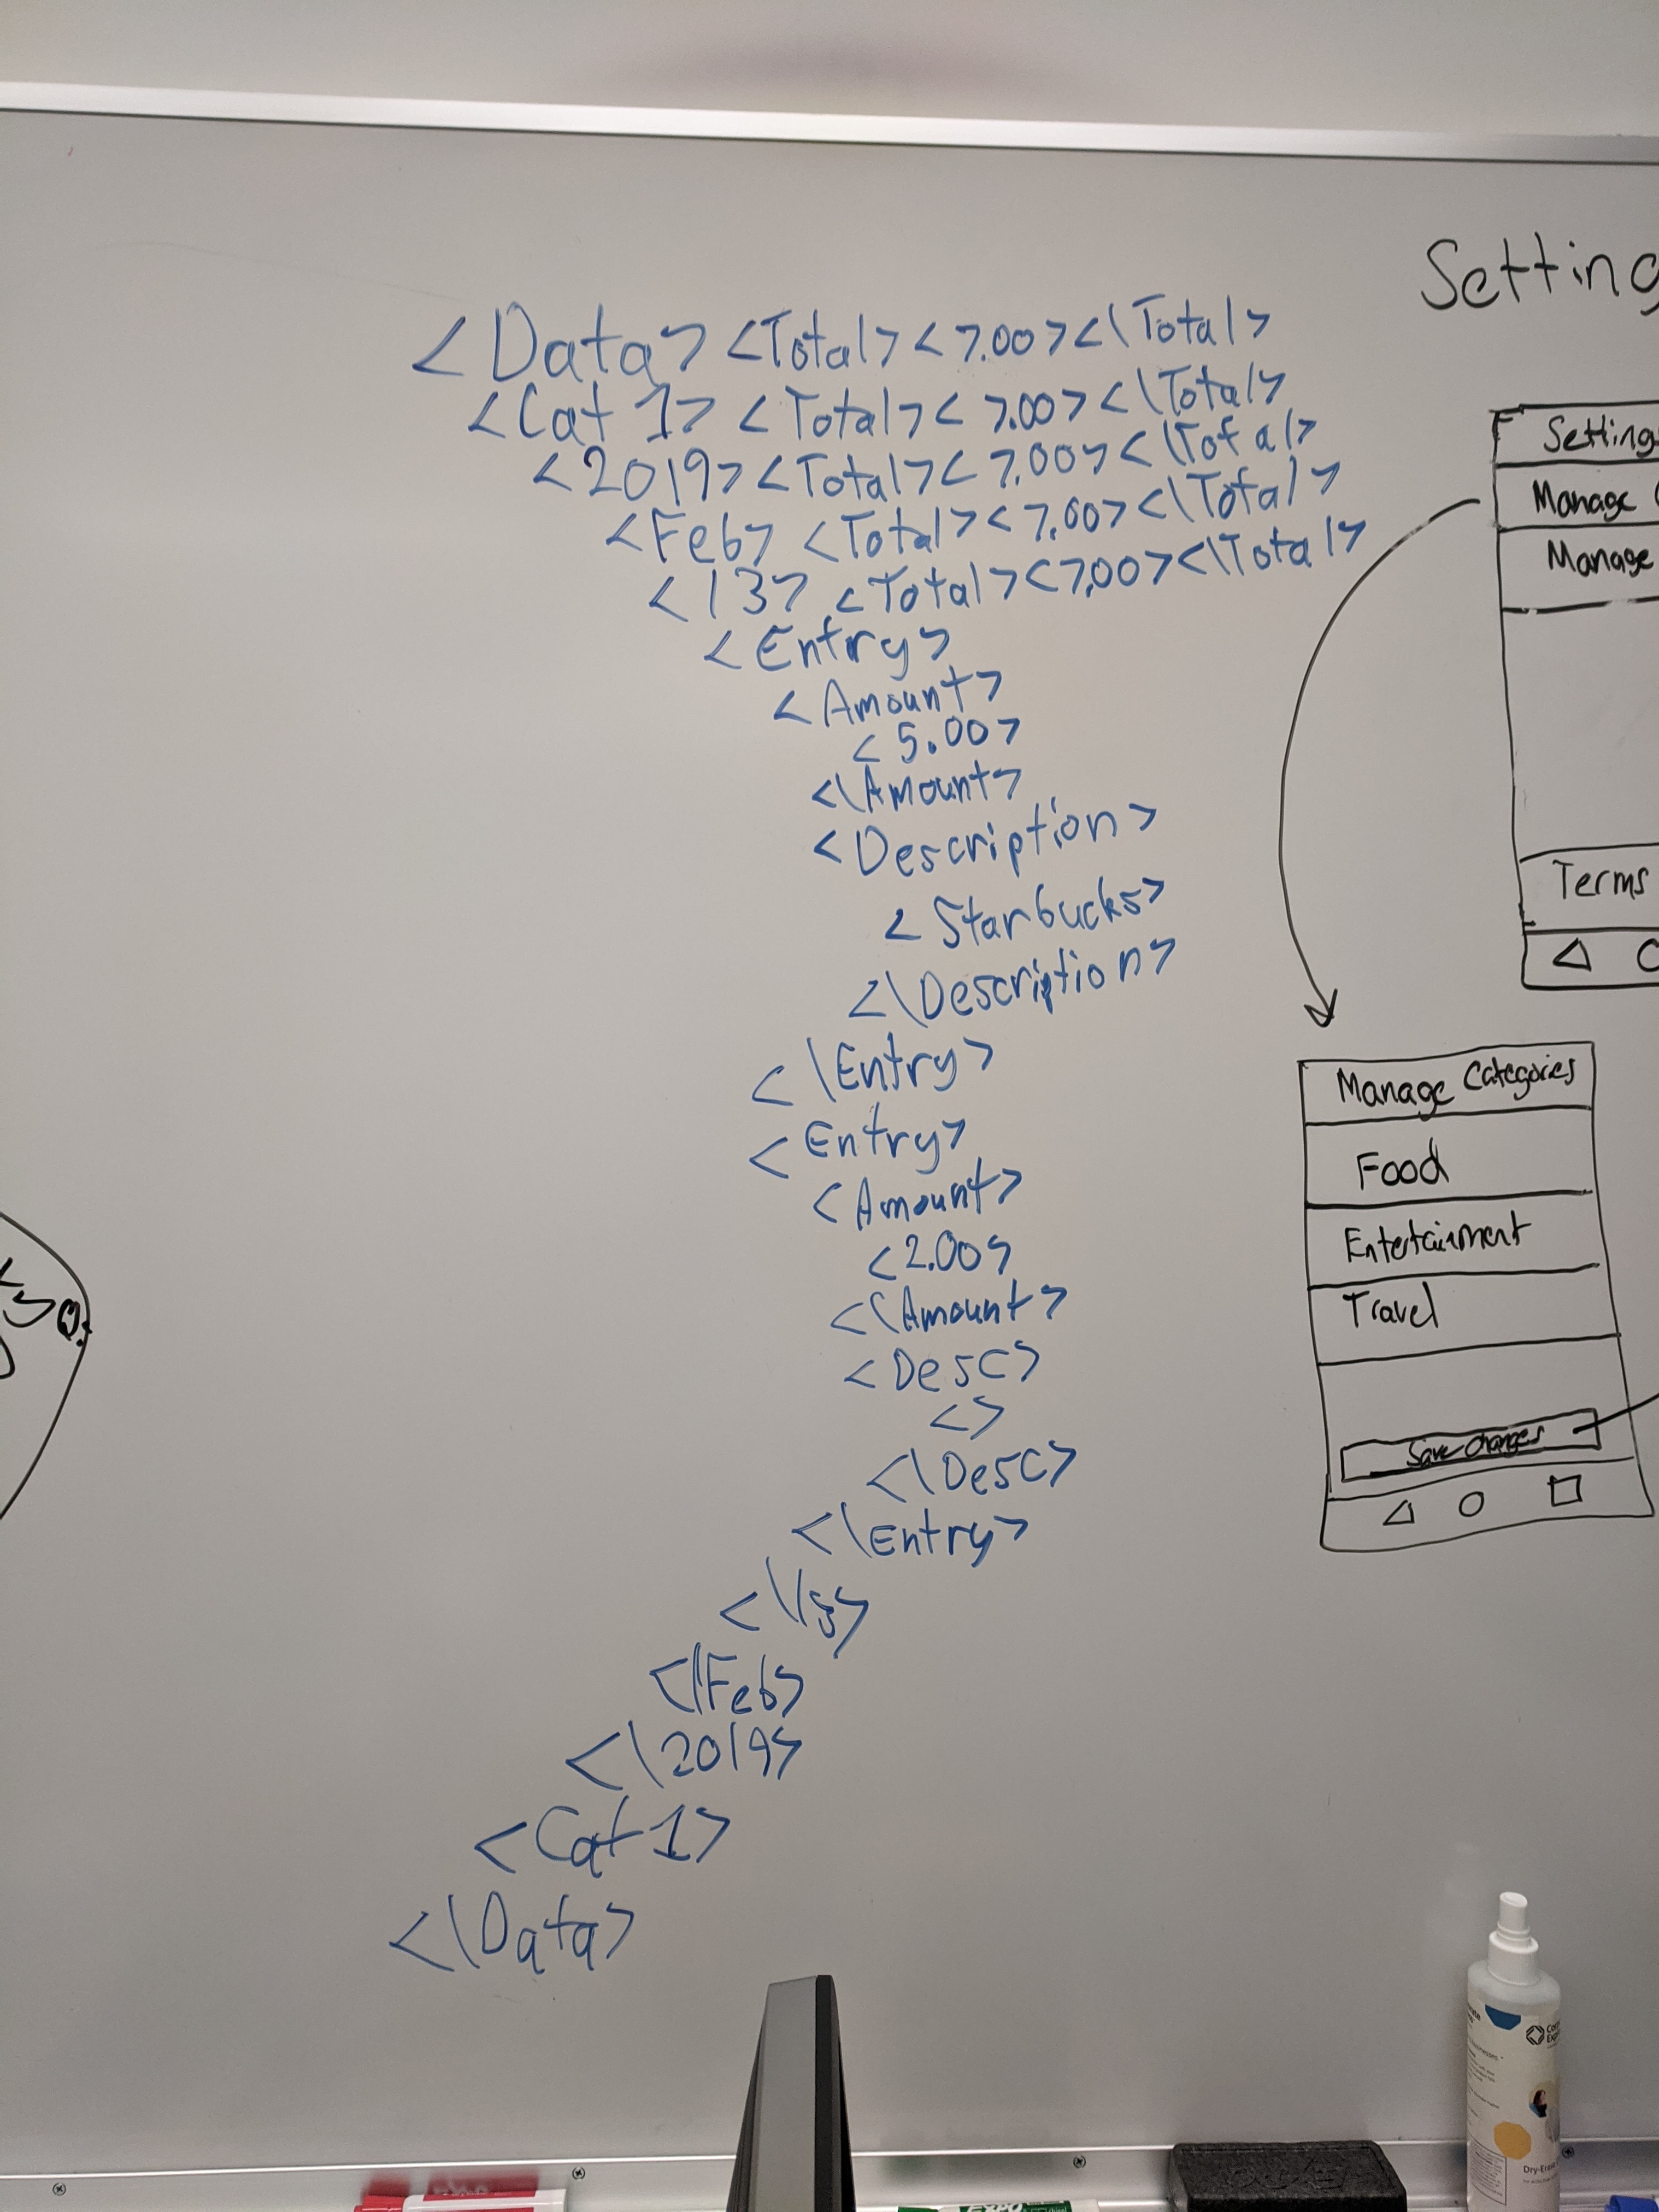 <Data> <Total> <7.00> <\Total>
<Cat 1> <Total> <7.00> <\Total>
<2019> <Total> <7.00> <\Total>
<Feb> <Total> <7.00> <\Total>
<13> <Total> <7.00> <\Total>
<Entry>
<Amount>
<5.00>
<\Amount>
<Description>
<Starbucks>
<\Description>
<\Entry>
<Entry>
<Amount>
<2.00>
<\Amount>
<Desc>
<>
<\Desc>
<\Entry>
<\13>
<\Feb>
<\2019>
<Cat 1>
<\Data>
Setting
Settings
Manage
Manage
Terms
Manage Categories
Food
Entertainment
Travel
Save Changes
EXPO
Dry-Erase